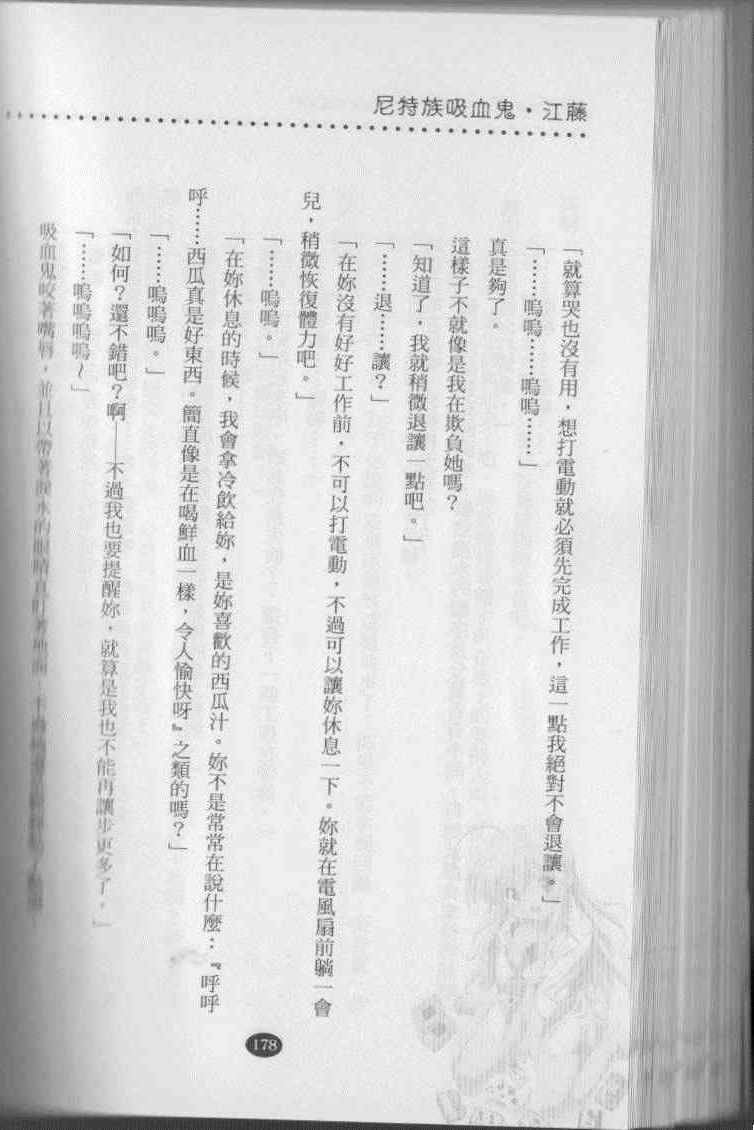 尼特族吸血鬼・江藤
「就算哭也沒有用，想打電動就必須先完成工作，這一點我絕對不會退讓。」
「……嗚嗚……嗚嗚……」
真是夠了。
這樣子不就像是我在欺負她嗎？
「知道了，我就稍微退讓一點吧。」
「……退……讓？」
「在妳沒有好好工作前，不可以打電動，不過可以讓妳休息一下。妳就在電風扇前躺一會
兒，稍微恢復體力吧。」
「……嗚嗚。」
「在妳休息的時候，我會拿冷飲給妳，是妳喜歡的西瓜汁。妳不是常常在說什麼：『呼呼
呼……西瓜真是好東西。簡直像是在喝鮮血一樣，令人愉快呀』之類的嗎？」
「……嗚嗚嗚。」
「如何？還不錯吧？啊——不過我也要提醒妳，就算是我也不能再讓步更多了。」
「……嗚嗚嗚嗚～」
吸血鬼咬著嘴唇，並且以帶著淚水的眼睛直盯著地面
178